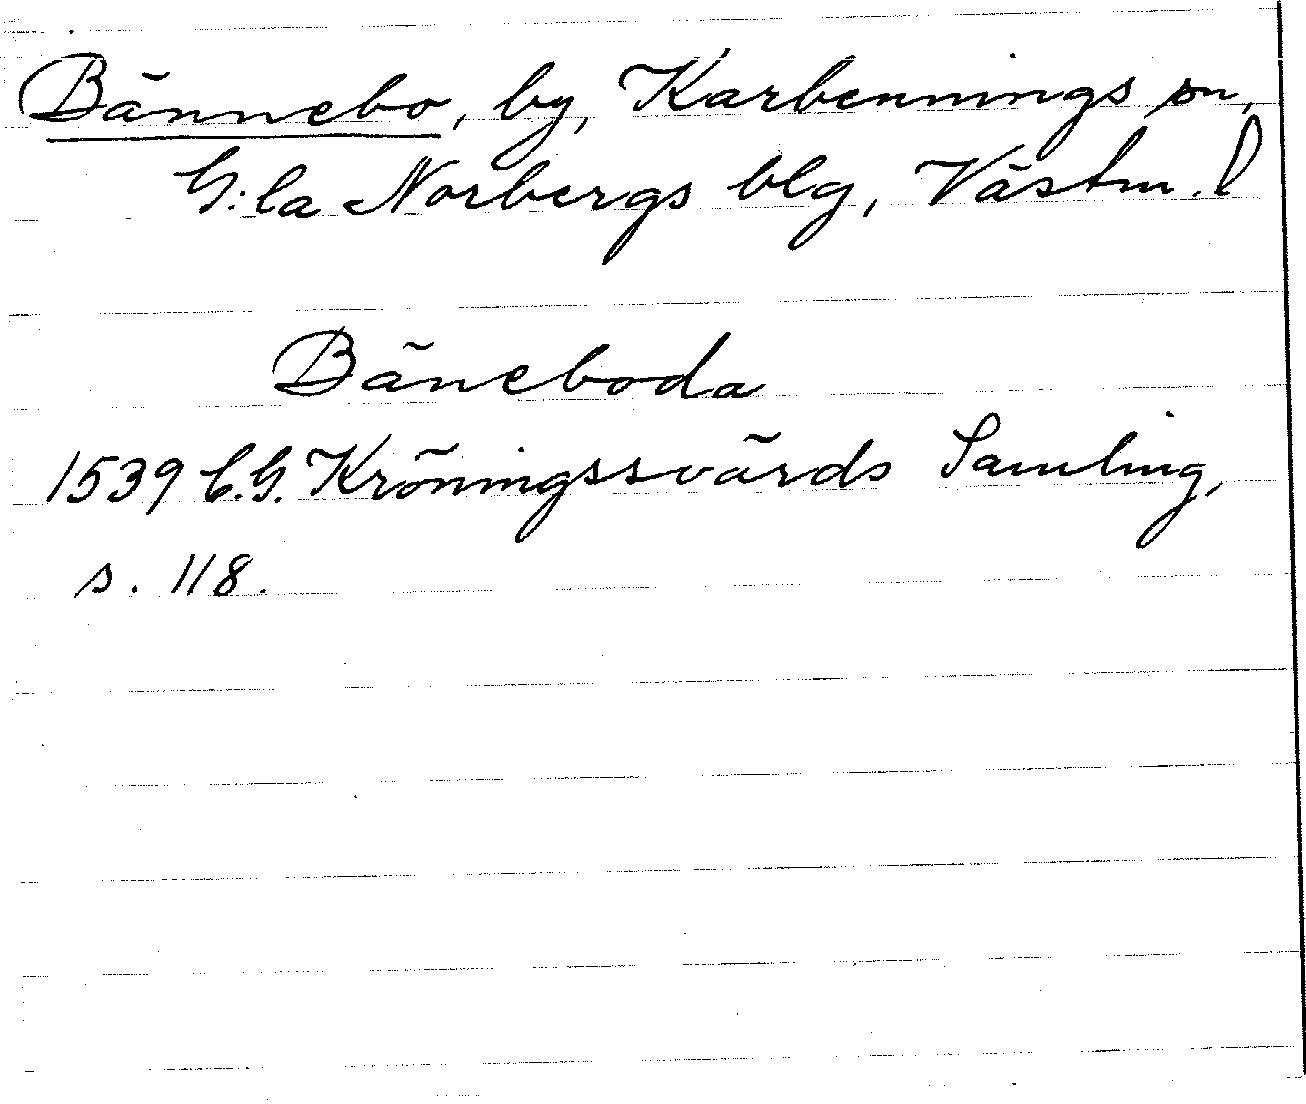 Bännebo, by, Karbennings sn,
G:la Norbergs blg, Västm. l
Bäneboda
1539 C.G. Kröningssvärds Samling,
s. 118.